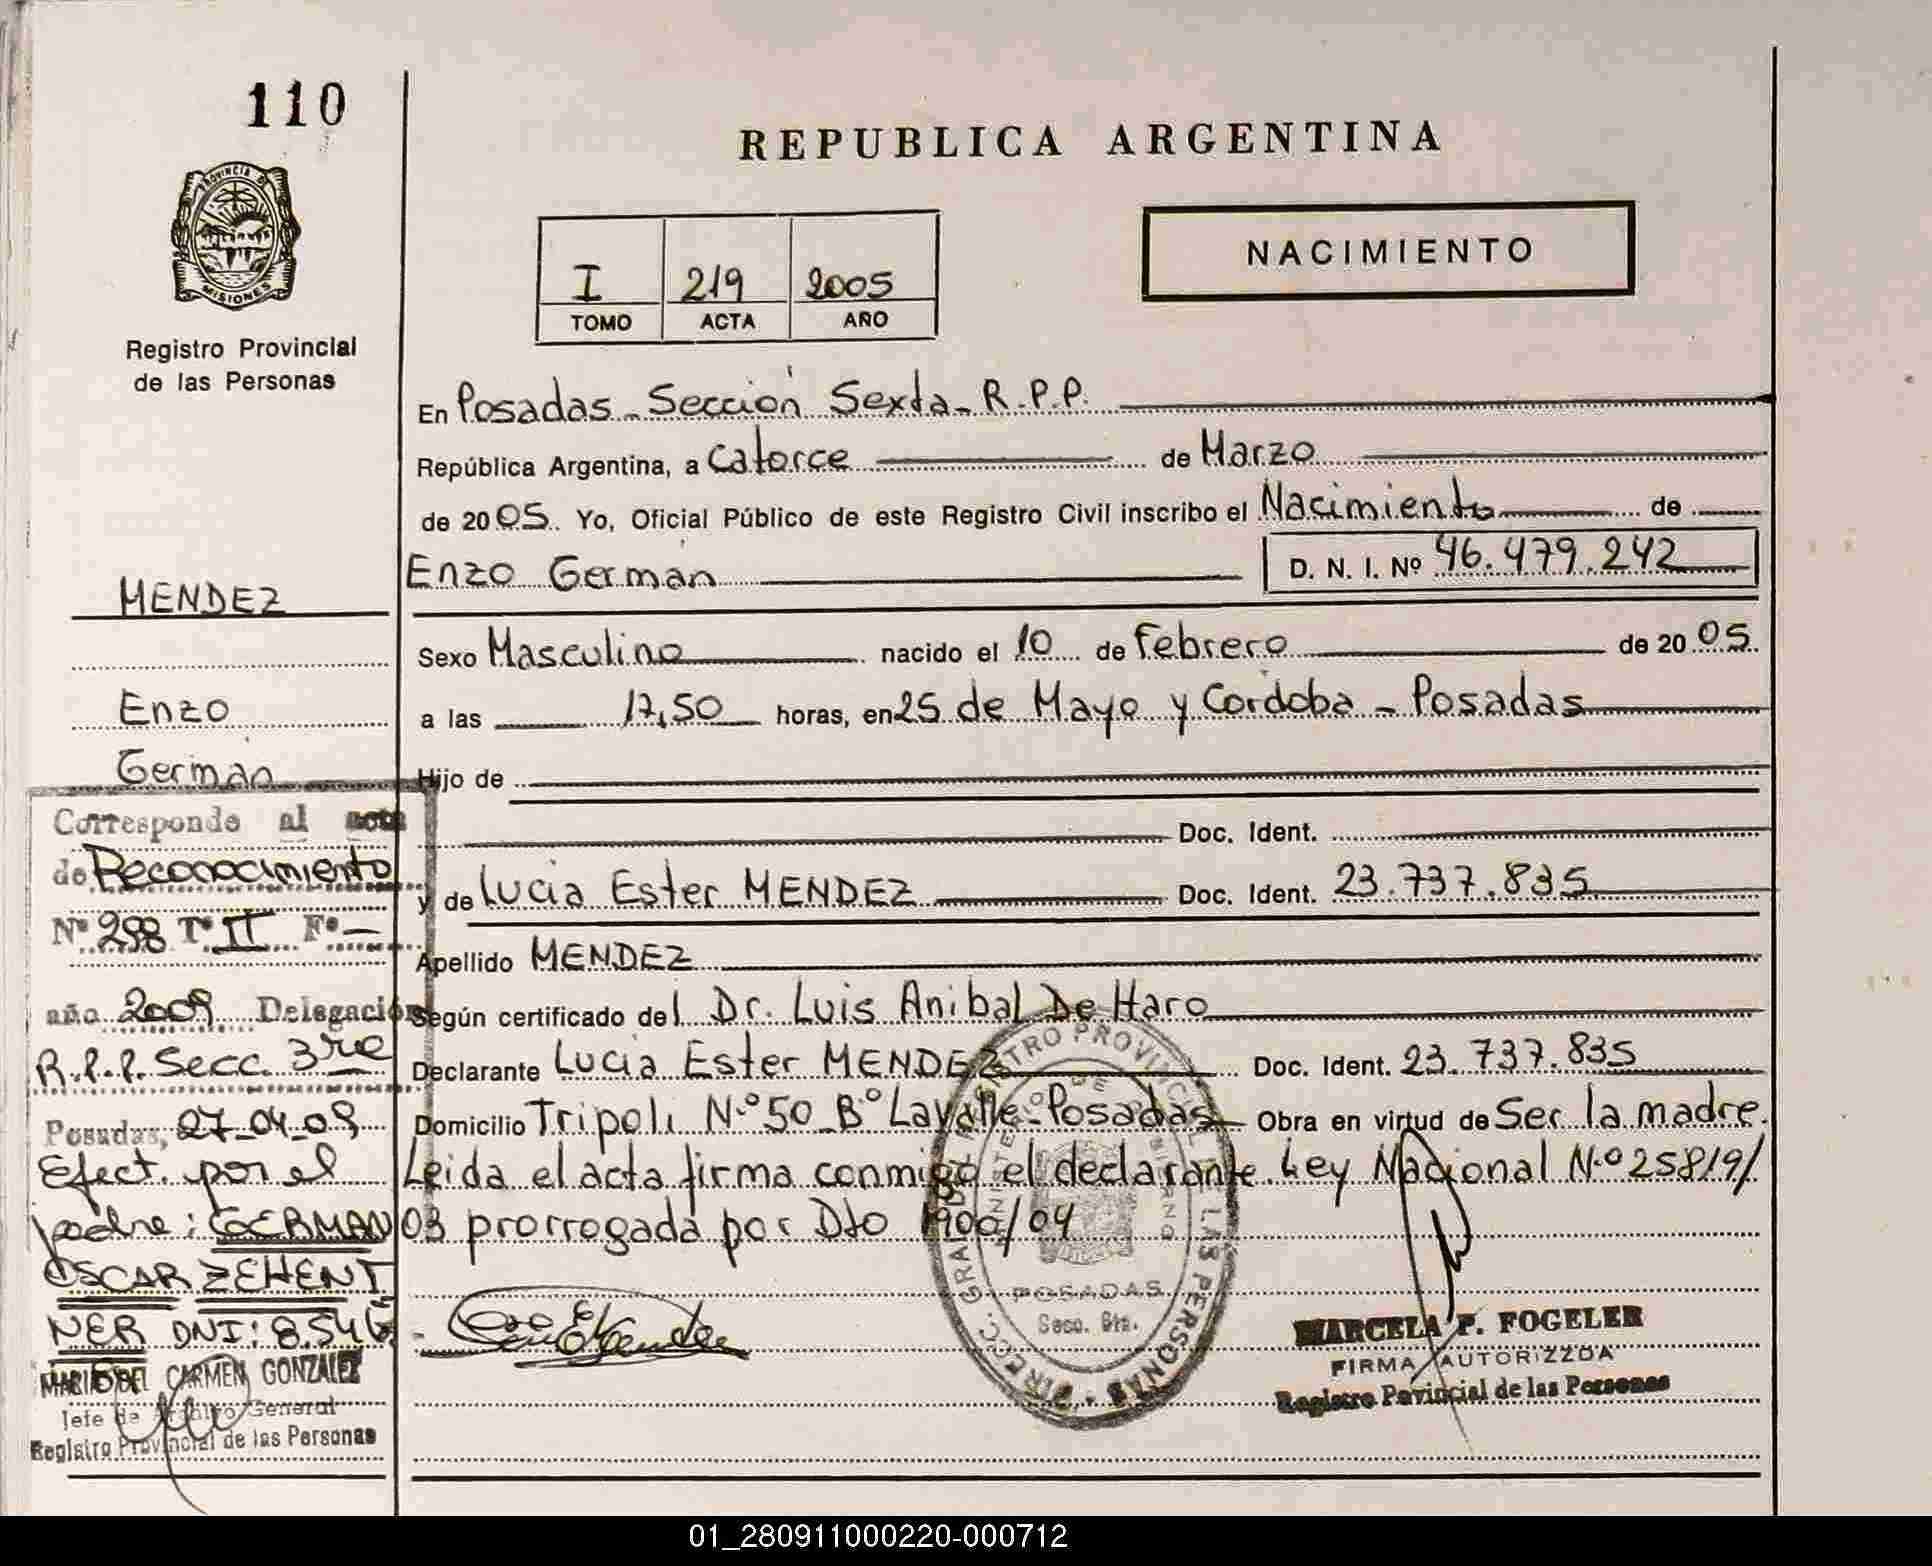 110
REPUBLICA ARGENTINA
PROVINCIA DE
MISIONES
Registro Provincial
de las Personas
I 219 2005
TOMO ACTA AÑO
NACIMIENTO
En Posadas - Sección Sexta - R.P.P.
República Argentina, a catorce de Marzo
de 2005. Yo, Oficial Público de este Registro Civil inscribo el Nacimiento de
Enzo Germán D. N. I. Nº 46.479.242
MENDEZ
Enzo
Germán
Sexo Masculino nacido el 10 de Febrero de 2005.
a las 17,50 horas, en 25 de Mayo y Cordoba - Posadas
Hijo de
Doc. Ident.
y de Lucia Ester MENDEZ Doc. Ident. 23.737.835
Apellido MENDEZ
Según certificado del Dr. Luis Anibal De Haro
Declarante Lucia Ester MENDEZ Doc. Ident. 23.737.835
Domicilio Tripoli N.º 50 - Bº Lavalle - Posadas Obra en virtud de Ser la madre.
Leida el acta firma conmigo el declarante. Ley Nacional N.º 25819/
03 prorrogada por Dto 1900/04
Corresponde al acta
de Reconocimiento
Nº 298 Tº II Fº -
año 2009 Delegación
R.P.P. Secc. 3re
Posadas, 27-04-09
Efect. por el
padre: GERMAN
OSCAR ZEHENT
NER DNI: 8.546
MARIA DEL CARMEN GONZALEZ
Jefe de Archivo General
Registro Provincial de las Personas
POSADAS
Secc. 6ta.
MARCELA P. FOGELER
FIRMA AUTORIZZDA
Registro Pavincial de las Personas
01_280911000220-000712